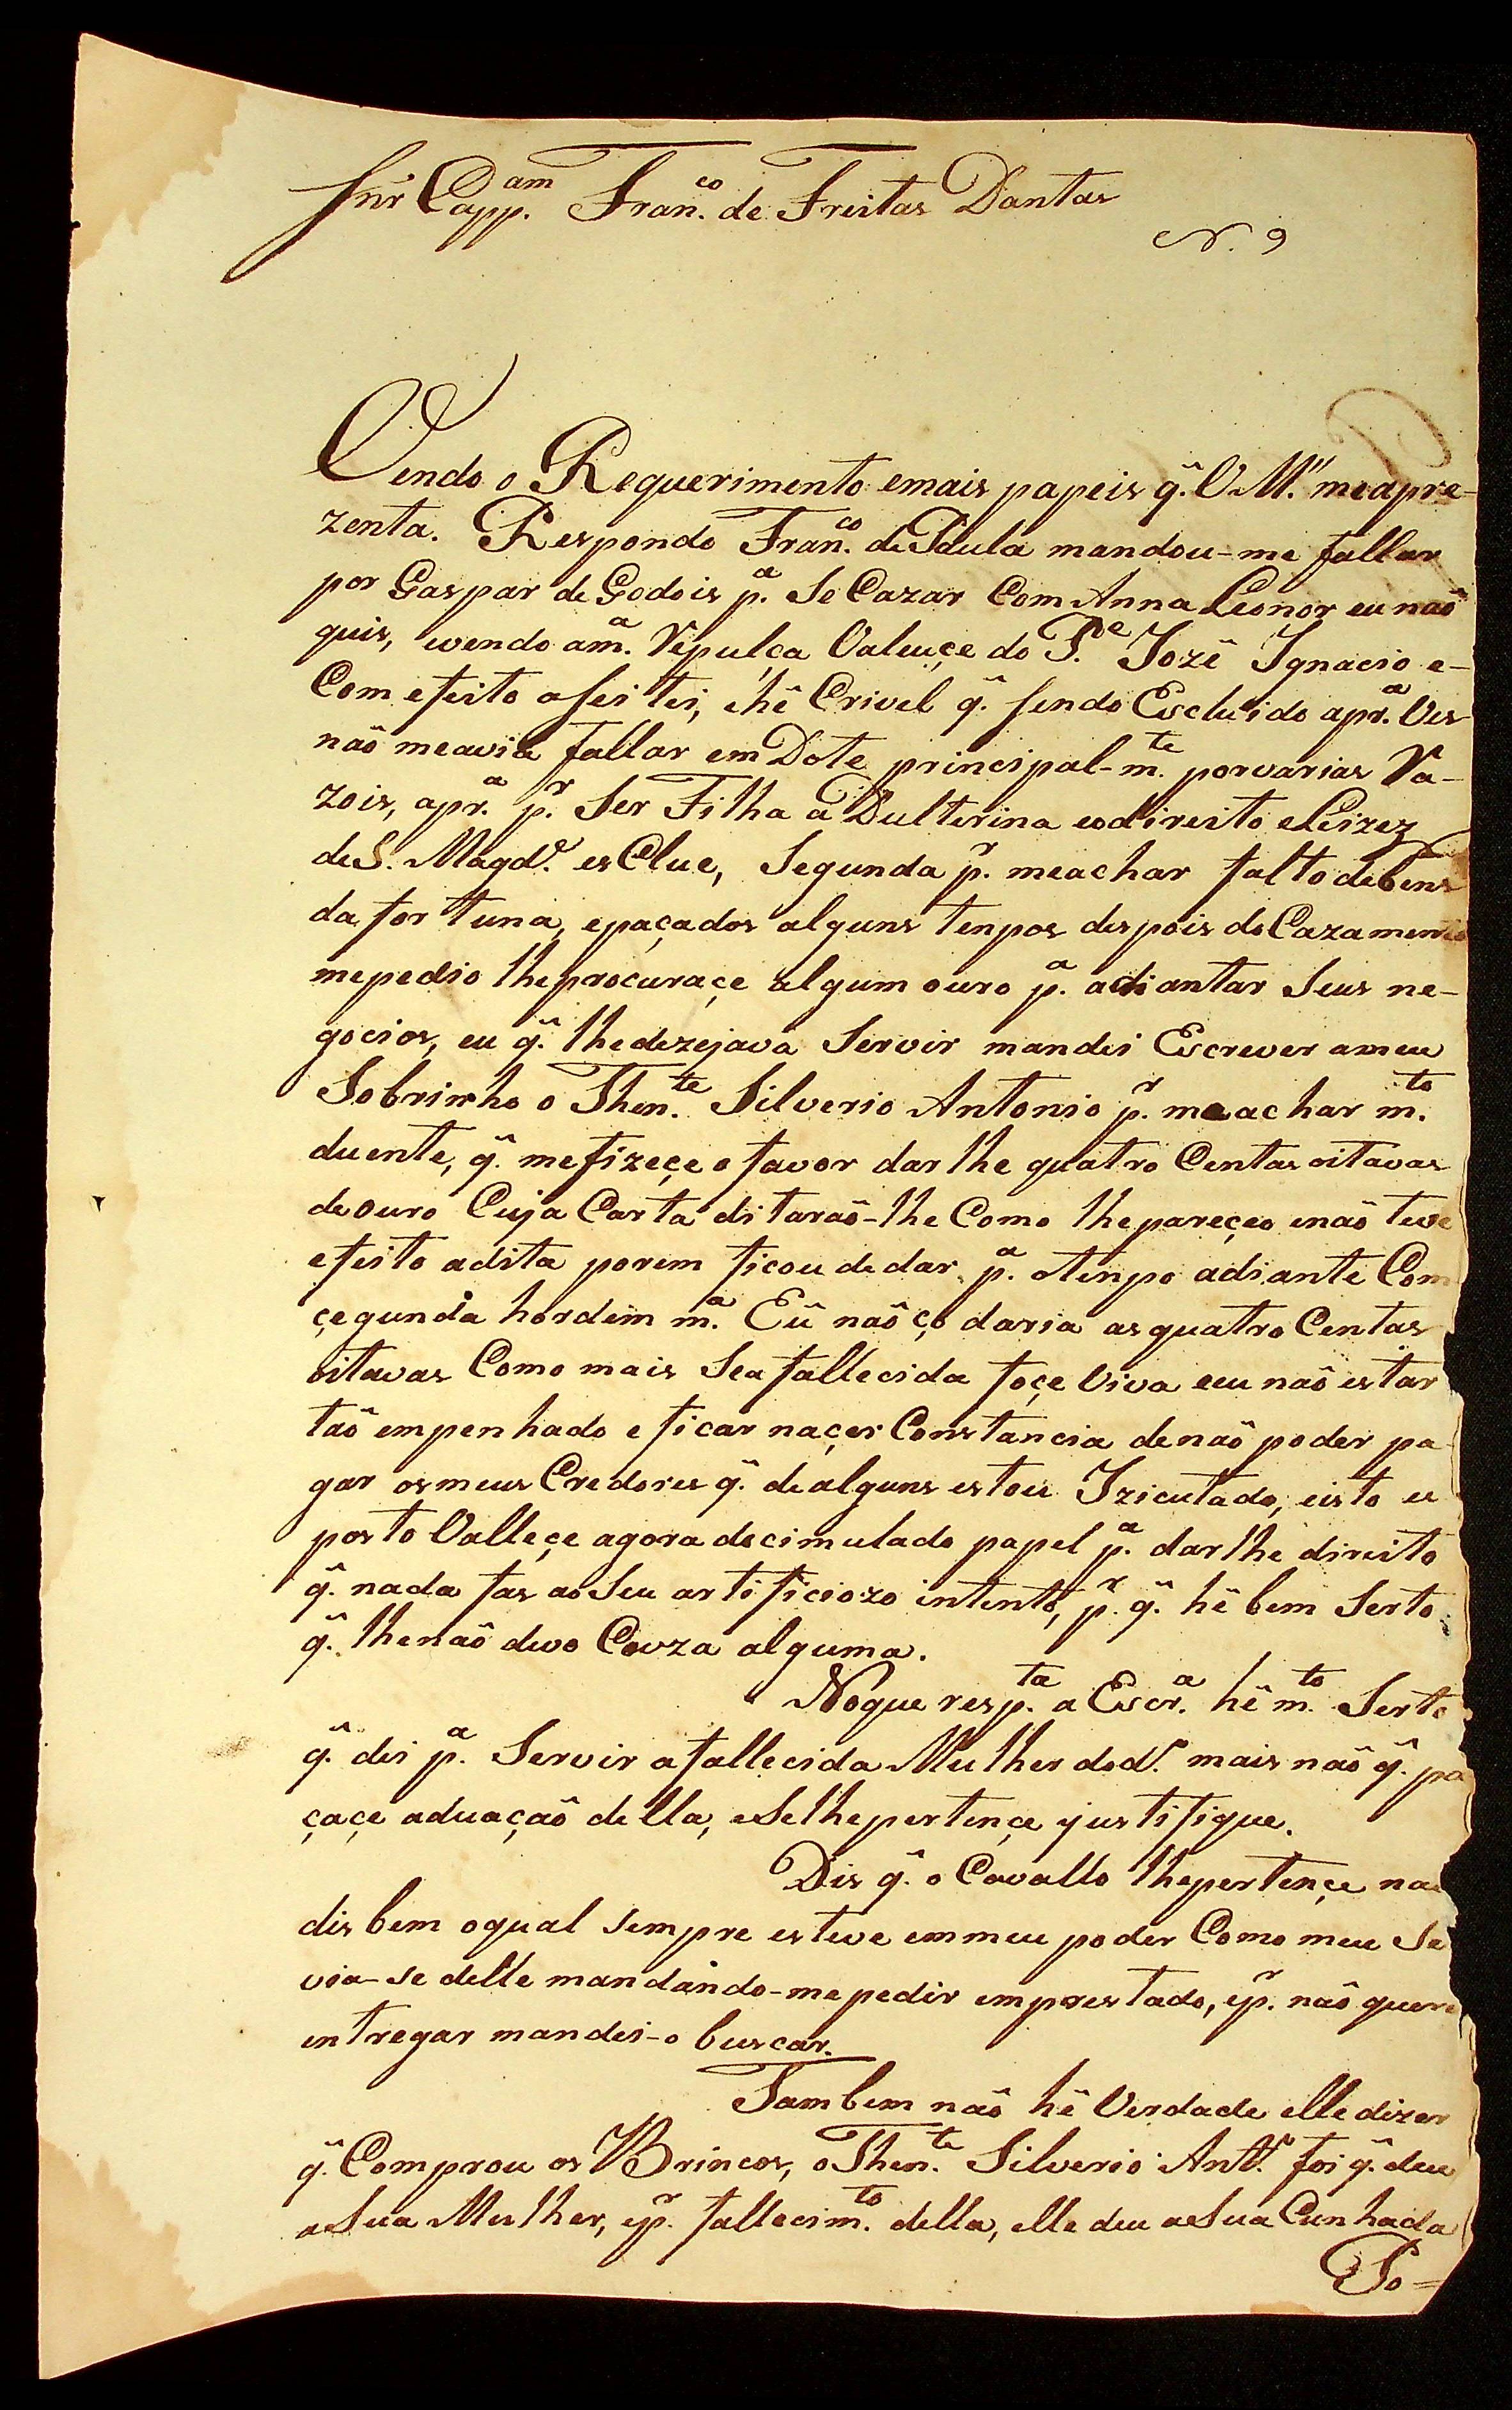 Snr Capp.am Fran.co de Freitas Dantas
N. 9
Vendo o Requerimento emais papeis q̂. V.M.ce meapre-
zenta. Respondo Fran.co de Paula mandou-me fallar
por Gaspar de Godois p.a Se Cazar Com Anna Leonor eu naô
quis, wendo am.a Repulça Valeuçe do P.e Jozê Ignacio e-
Com efeito aseitei, ehê Crivel q̂. sendo Escluido apr.a Ves
naô meavia fallar em Dote principal-m.te porvarias Ra-
zois, apr.a p.r Ser Filha a Dulterina eodireito eLeizez
deS. Magd.e esClue, Segunda p.r meachar falto debens
da fortuna, epaçados alguns tenpos despois do Cazamento
mepedio lheprocuraçe algum ouro p.a adiantar Seus ne-
gocios, eu q̂. lhedezejava Servir mandei Escrewer ameu
Sobrinho o Then.te Silverio Antonio p.r meachar m.to
duente, q̂. mefizeçe o favor darlhe quatro Centas oitavas
deouro Cuja Carta ditaraô-lhe Como lhepareçeo enaô tewe
efeito adita porem ficou de dar p.a otenpo adiante Com
çegunda hordem m.a Eû naô ço daria asquatro Centas
oitavas Como mais Sea fallecida foçe Viva eeu naô estar
taô empenhado eficar naçer Constancia denaô poder pa-
gar osmeus Credores q̂. dealguns estou Izicutado, eisto es
posto Valleçe agora decimulado papel p.a darlhe direito
q̂. nada fas ao Seu artificiozo intento, p.r q̂. hê bem Serto
q̂. lhenaô dewo Couza alguma.
Noque resp.ta a Escr.a hê m.to Serto
q̂. dei p.a Servir afallecida Mulher dod.o mais naô q̂. pa
çaçe aduaçaô della, eSelhepertençe justifique.
Dis q̂. o Cavallo lhepertençe naô
dis bem oqual Sempre estewe emmeu poder Como meu Se
via-se delle mandando-mepedir emprestado, ep.r naô quere
entregar mandei-o buscar.
Tambem naô hê Verdade elle dizer
q̂. Comprou os Brincos, oThen.te Silverio Ant.o foi q̂. deu
aSua Mulher, ep.r fallecim.to della, elle deu aSua Cunhada
Po=